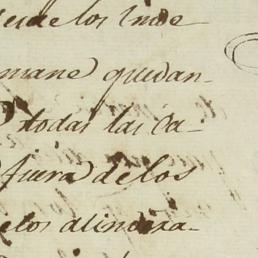 de los Inde
mane quedan-
todas las ca-
fuera de los
los alindera-